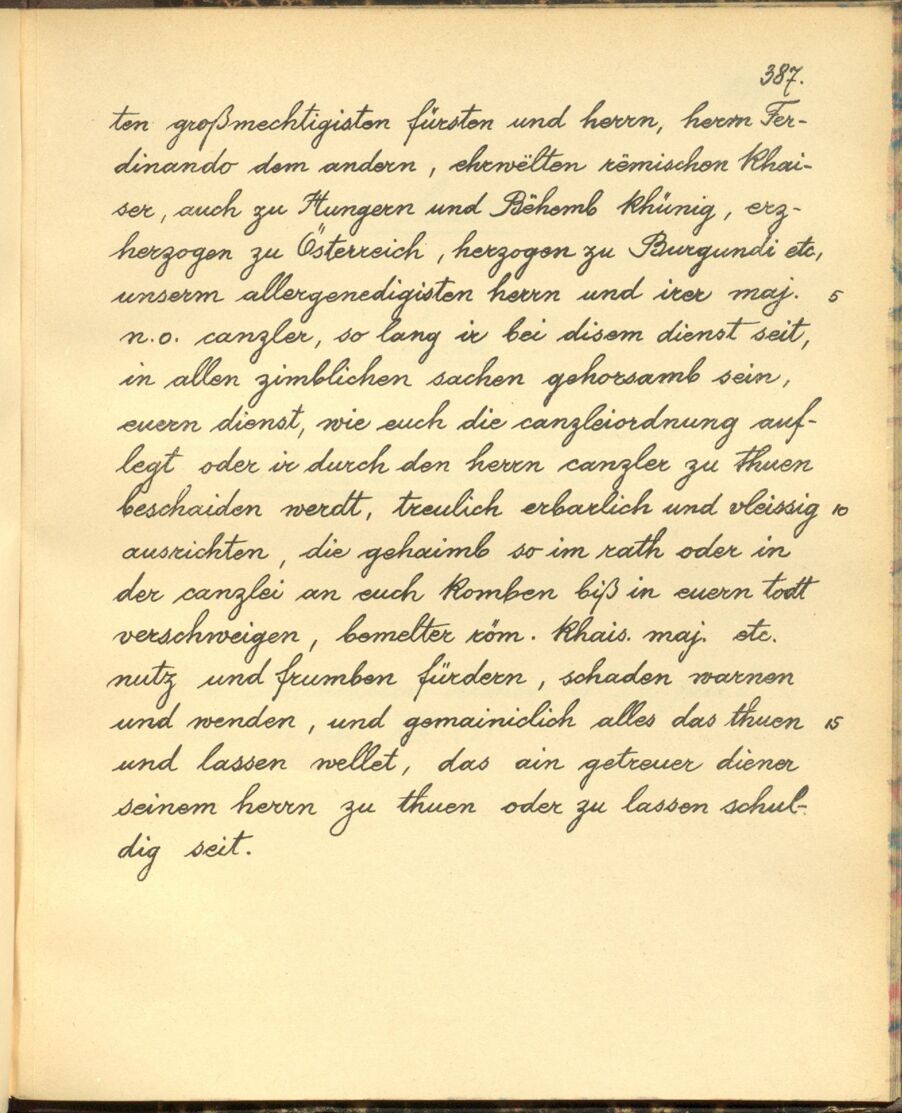 387.
ten großmechtigisten fürsten und herrn, herrn Fer-
dinando dem andern, ehrwëlten rëmischen khai-
ser, auch zu Hungern und Bëhemb khünig, erz-
herzogen zu Österreich, herzogen zu Burgundi etc,
unserm allergenedigisten herrn und irer maj. 5
n.o. canzler, so lang ir bei disem dienst seit,
in allen zimblichen sachen gehorsamb sein,
euern dienst, wie euch die canzleiordnung auf-
legt oder ir durch den herrn canzler zu thuen
beschaiden werdt, treulich erbarlich und vleissig 10
ausrichten, die gehaimb so im rath oder in
der canzlei an euch komben biß in euern todt
verschweigen, bemelter röm. khais. maj. etc.
nutz und frumben fürdern, schaden warnen
und wenden, und gemainiclich alles das thuen 15
und lassen wellet, das ain getreuer diener
seinem herrn zu thuen oder zu lassen schul-
dig seit.